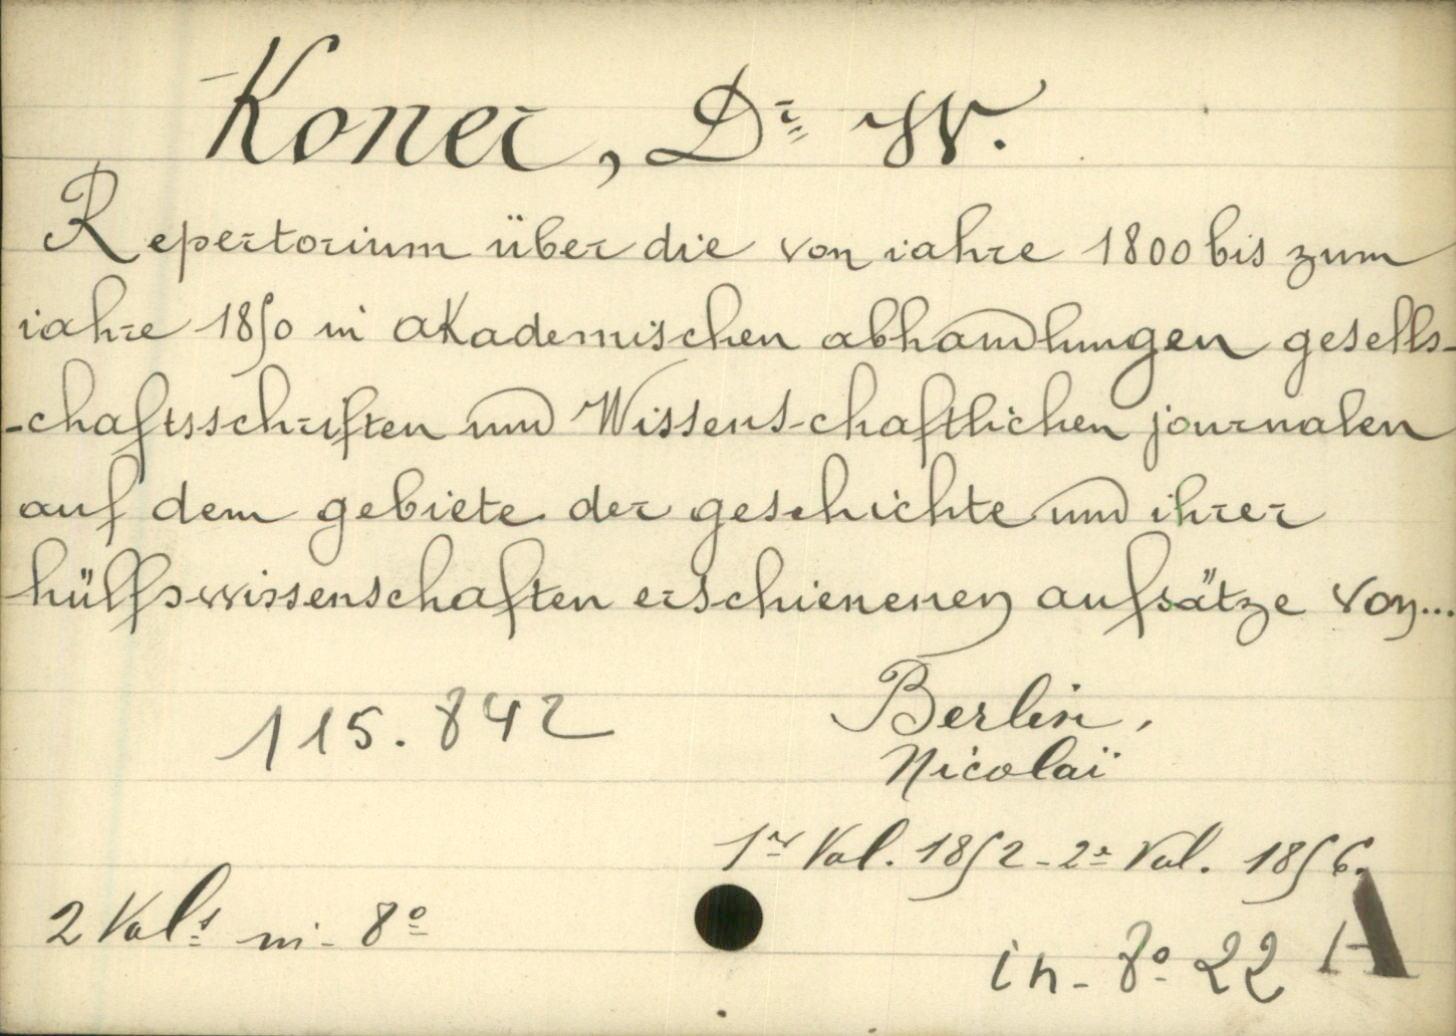 Koner, Dr W.
Repertorium über die von iahre 1800 bis zum
iahre 1850 in akademischen abhandlungen gesells-
-chaftsschriften und Wissens-chaftlichen journalen
auf dem gebiete der geschichte und ihrer
hülfswissenschaften erschienenen aufsätze von...
115.842
Berlin,
Nicolaï
1er Vol. 1852 - 2e Vol. 1856.
2 Vols in-8o
in-8o 22 A